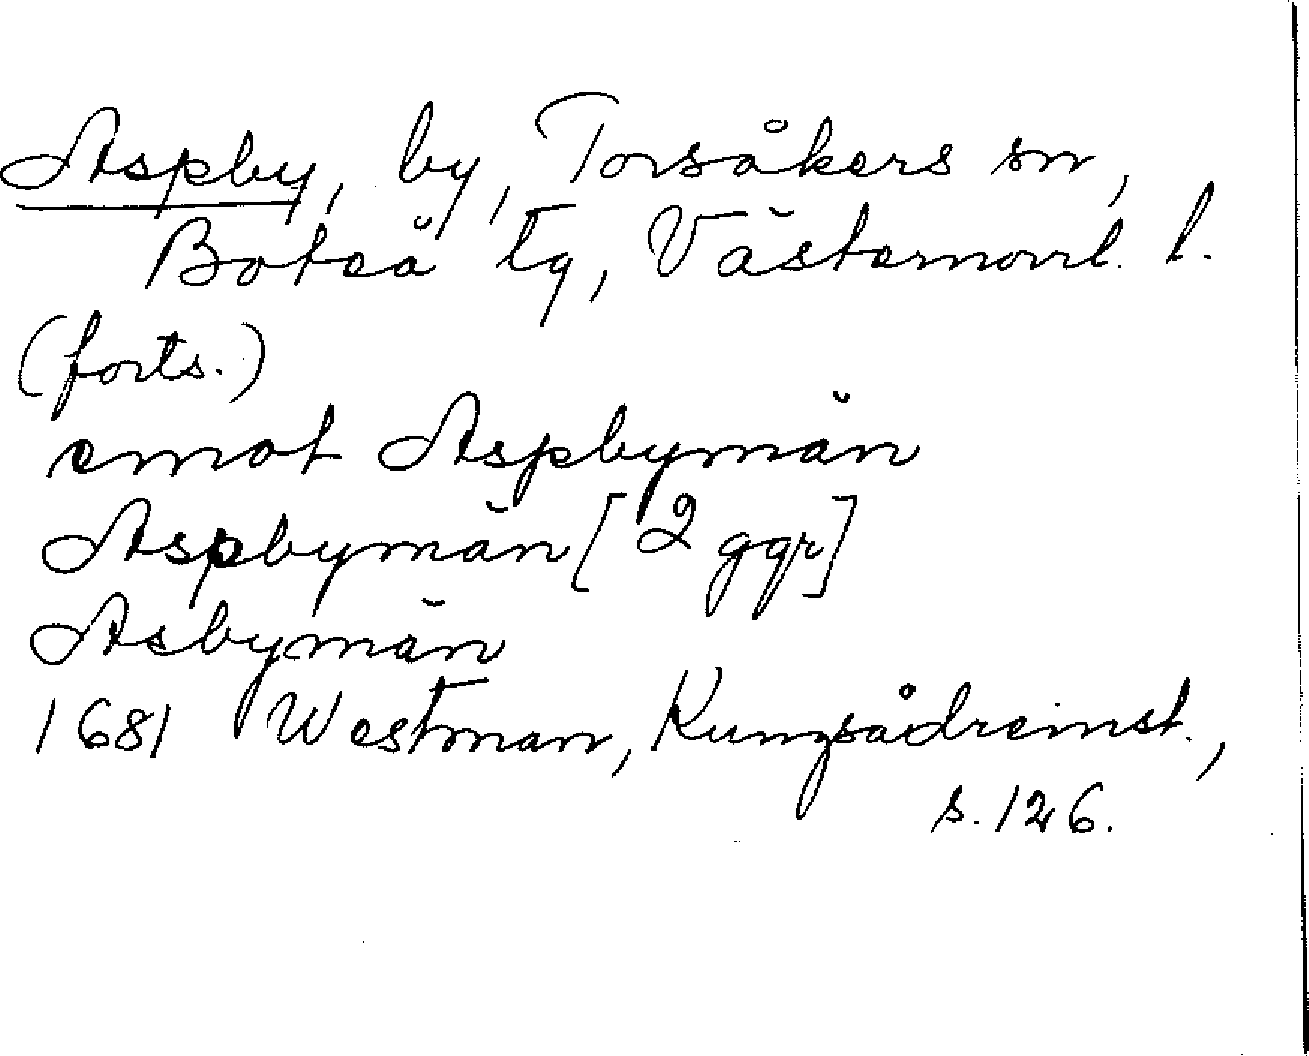 Aspby, by, Torsåkers sn,
Boteå tg, Västernorrl. l.
(forts.)
emot Aspbymän
Aspbymän [2 ggr]
Asbymän
1681 Westman, Kungsådreinst.,
s. 126.